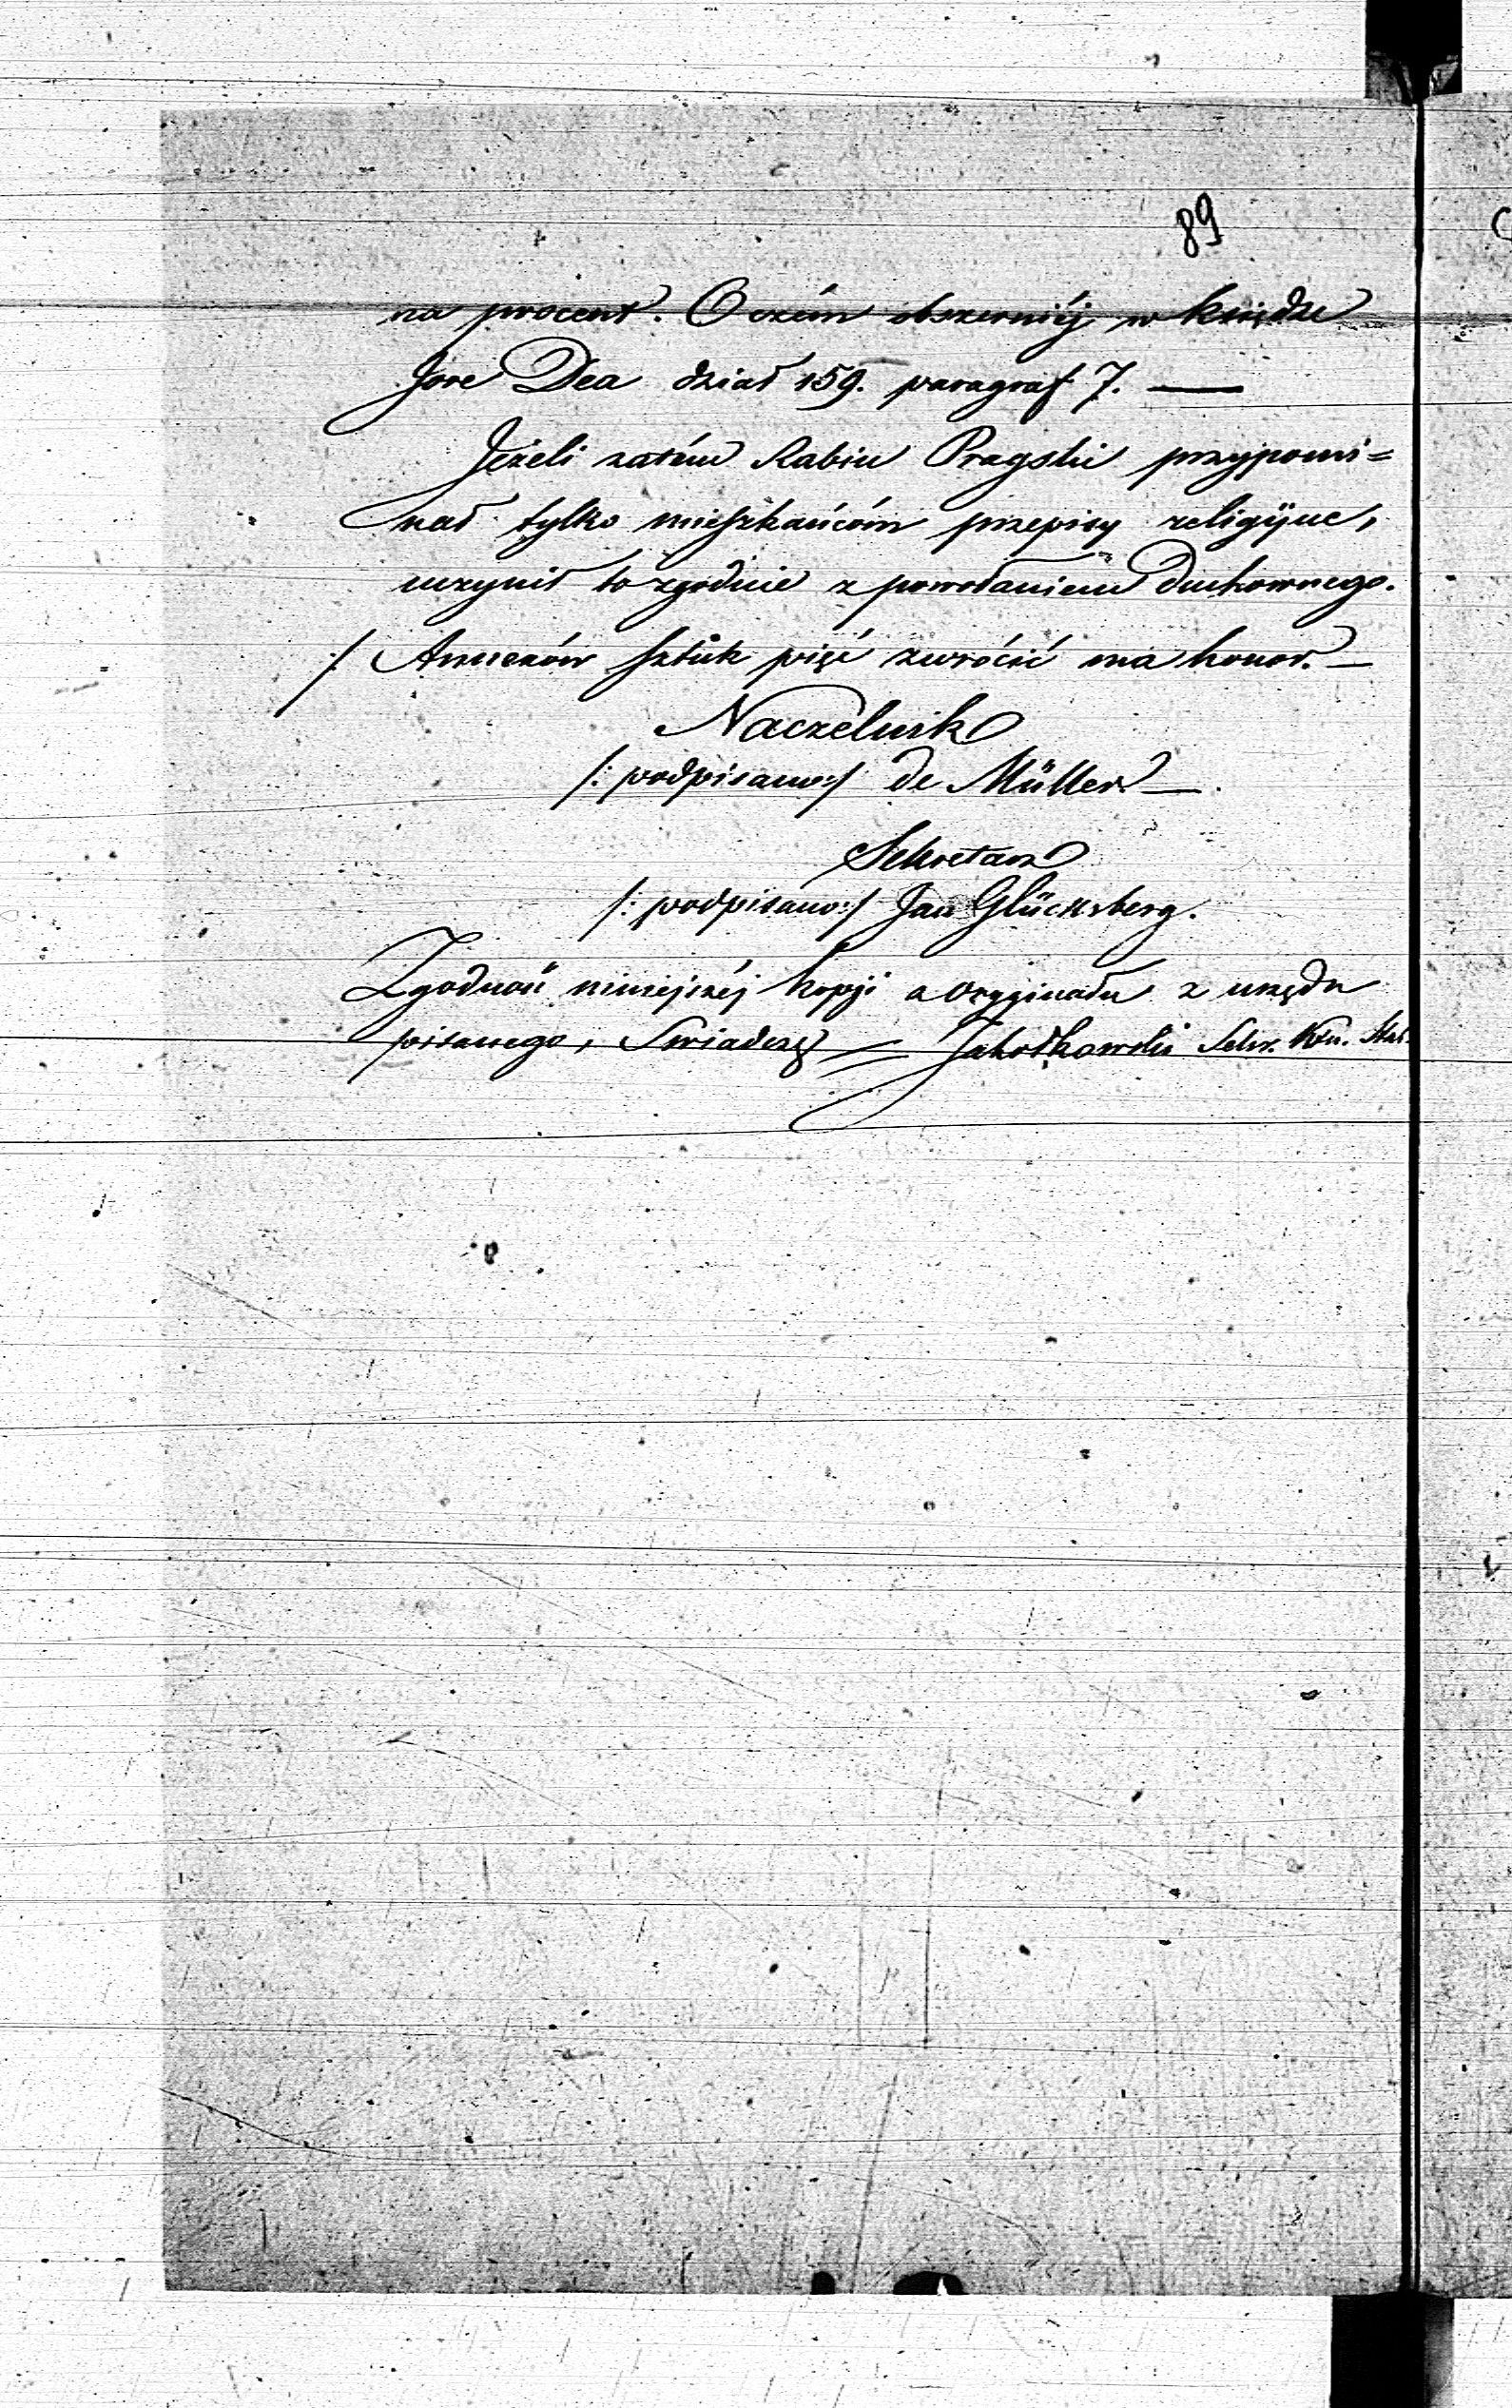 89
na procent. O czém obszerniéj w księdze
Jore Dea dział 159. paragraf 7. —
Jeżeli zatém Rabin Pragski przypomi=
nał tylko mieszkańcóm przepisy religijne,
uczynił to zgodnie z powołaniem Duchownego.
/ Annexów sztuk pięć zwrócić ma honor. —
Naczelnik
/: podpisano:/ de Müller —
Sekretarz
/: podpisano:/ Jan Glücksberg.
Zgodność niniejszéj kopji a oryginału z urzędu
pisanego, Swiadczę Sekr.